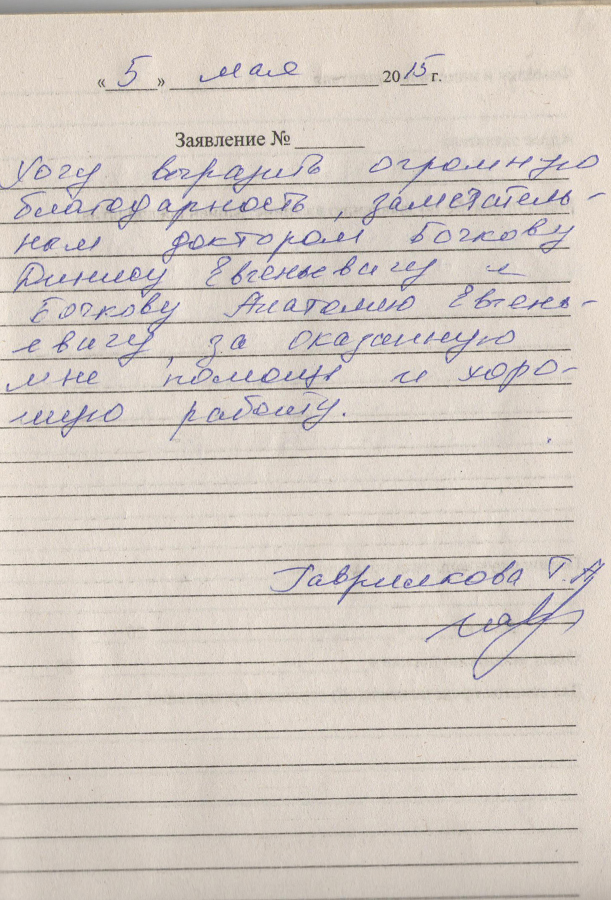 « 5 » мая 2015 г.
Заявление № ______
Хочу выразить огромную
благодарность, замечатель-
ным доктором Бочкову
Денису Евгеньевичу и
Бочкову Анатолию Евгень-
евичу, за оказанную
мне помощь и хоро-
шую работу.
Гаврилкова Т.А